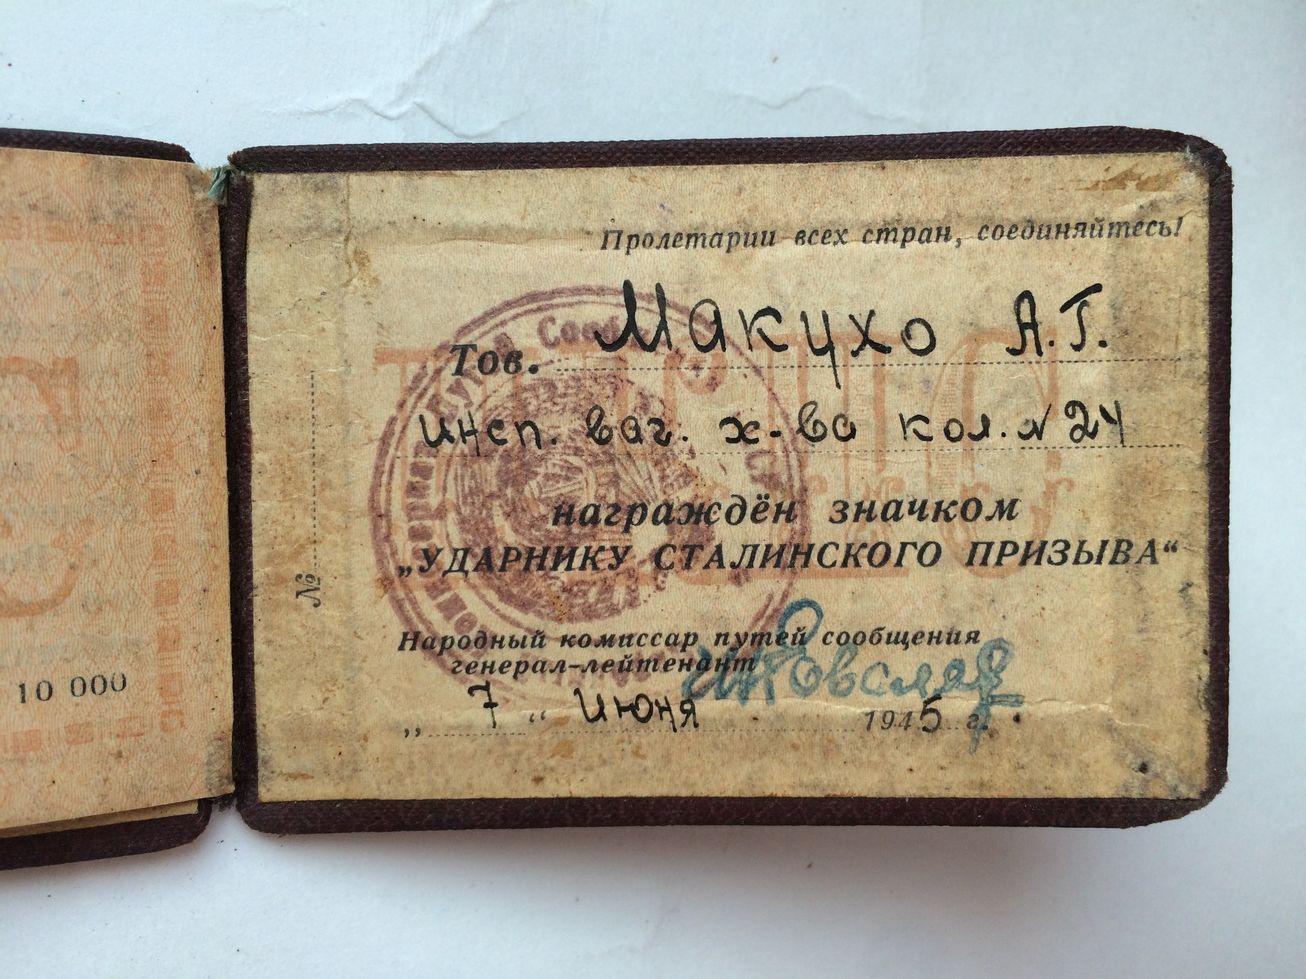 Пролетарии всех стран, соединяйтесь!
Тов. Макухо А.Г.
инсп. ваг. х-ва кол. №24
награждён значком
„УДАРНИКУ СТАЛИНСКОГО ПРИЗЫВА“
Народный комиссар путей сообщения
генерал-лейтенант
„ 7 “ Июня 1945 г.
№
10 000